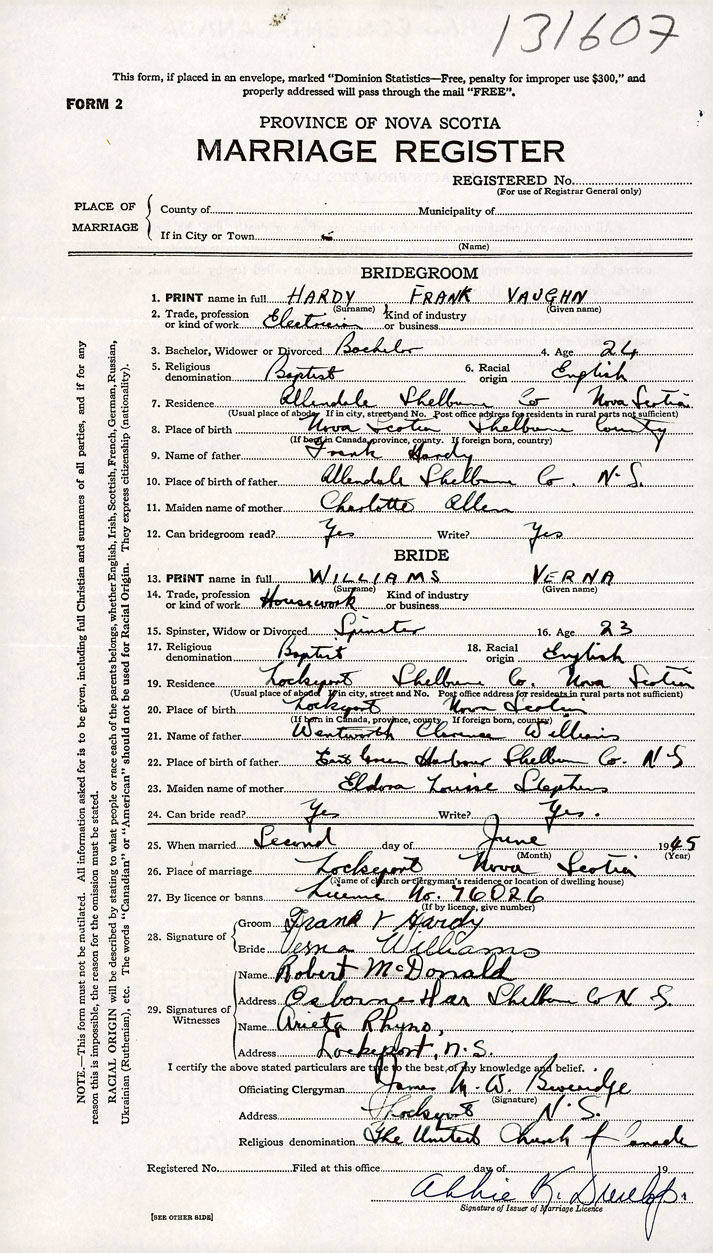 131607
This form, if placed in an envelope, marked “Dominion Statistics—Free, penalty for improper use $300,” and
properly addressed will pass through the mail “FREE”.
FORM 2
PROVINCE OF NOVA SCOTIA
MARRIAGE REGISTER
REGISTERED No.
(For use of Registrar General only)
PLACE OF MARRIAGE
County of Municipality of
If in City or Town
(Name)
BRIDEGROOM
1. PRINT name in full HARDY FRANK VAUGHN
(Surname) (Given name)
2. Trade, profession or kind of work Electrician Kind of industry or business
3. Bachelor, Widower or Divorced Bachelor 4. Age 24
5. Religious denomination Baptist 6. Racial origin English
7. Residence Allendale Shelburne Co Nova Scotia
(Usual place of abode. If in city, street and No. Post office address for residents in rural parts not sufficient)
8. Place of birth Nova Scotia Shelburne County
(If born in Canada, province, county. If foreign born, country)
9. Name of father Frank Hardy
10. Place of birth of father Allendale Shelburne Co. N.S.
11. Maiden name of mother Charlotte Allen
12. Can bridegroom read? Yes Write? Yes
BRIDE
13. PRINT name in full WILLIAMS VERNA
(Surname) (Given name)
14. Trade, profession or kind of work Housework Kind of industry or business
15. Spinster, Widow or Divorced Spinster 16. Age 23
17. Religious denomination Baptist 18. Racial origin English
19. Residence Lockeport Shelburne Co. Nova Scotia
(Usual place of abode. If in city, street and No. Post office address for residents in rural parts not sufficient)
20. Place of birth Lockeport Nova Scotia
(If born in Canada, province, county. If foreign born, country)
21. Name of father Wentworth Clarence Williams
22. Place of birth of father East Green Harbour Shelburne Co. N S
23. Maiden name of mother Eldora Louise Stephens
24. Can bride read? Yes Write? Yes.
25. When married Second day of June 1945
(Month) (Year)
26. Place of marriage Lockeport Nova Scotia
(Name of church or clergyman's residence or location of dwelling house)
27. By licence or banns License No. 76026
(If by licence, give number)
28. Signature of
Groom Frank V Hardy
Bride Verna Williams
29. Signatures of Witnesses
Name Robert McDonald
Address Osborne Har Shelburne Co N S.
Name Arieta Rhyno,
Address Lockeport, N.S.
I certify the above stated particulars are true to the best of my knowledge and belief.
Officiating Clergyman James M. W. Beveridge
(Signature)
Address Lockeport N.S.
Religious denomination The United Church of Canada
Registered No. Filed at this office day of 19
Abbie K. Dunlop.
Signature of Issuer of Marriage Licence
[SEE OTHER SIDE]
NOTE.—This form must not be mutilated. All information asked for is to be given, including full Christian and surnames of all parties, and if for any
reason this is impossible, the reason for the omission must be stated.
RACIAL ORIGIN will be described by stating to what people or race each of the parents belongs, whether English, Irish, Scottish, French, German, Russian,
Ukrainian (Ruthenian), etc. The words “Canadian” or “American” should not be used for Racial Origin. They express citizenship (nationality).